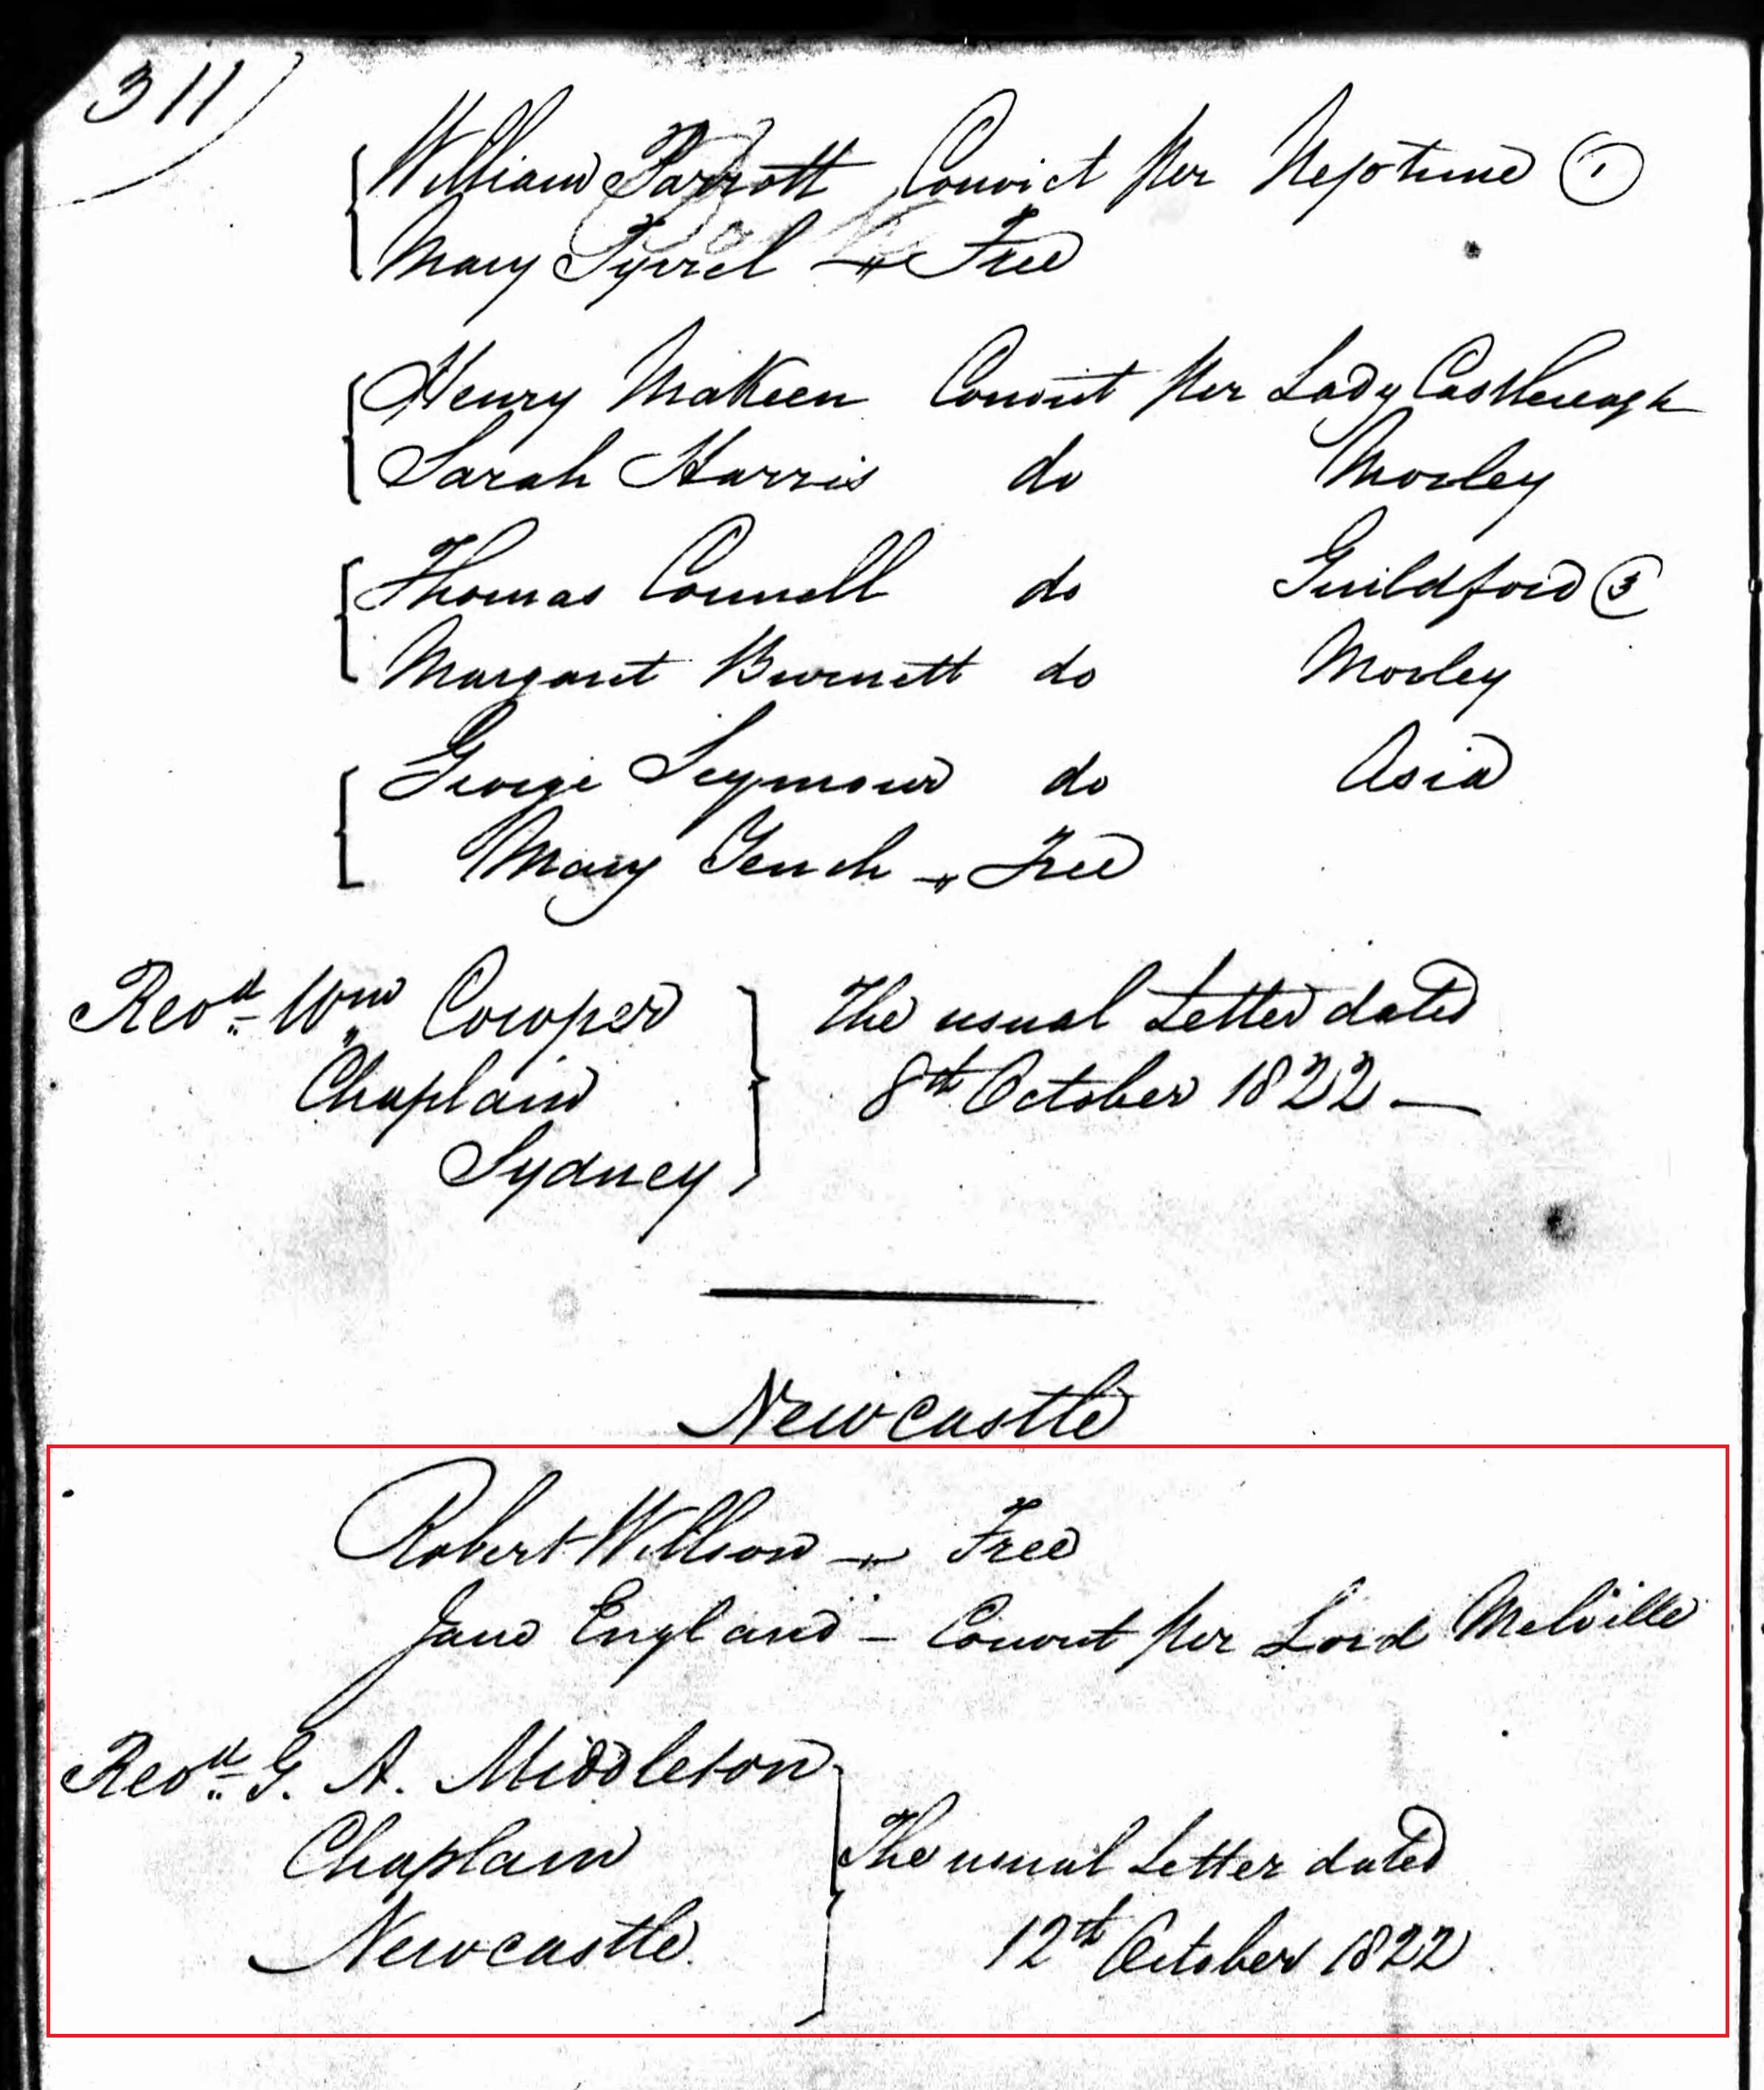 311
William Parrott Convict per Neptune (1)
Mary Tyrrel " Free
Henry McKeen Convict per Lady Castlereagh
Sarah Harris do Morley
Thomas Connell do Guildford (3)
Margaret Burnett do Morley
George Seymour do Asia
Mary Tench " Free
Revd. Wm Cowper } The usual Letter dated
Chaplain 8th October 1822 —
Sydney
Newcastle
Robert Willson " Free
Jane England - Convict per Lord Melville
Revd. G. A. Middleton
Chaplain } The usual Letter dated
Newcastle. 12th October 1822